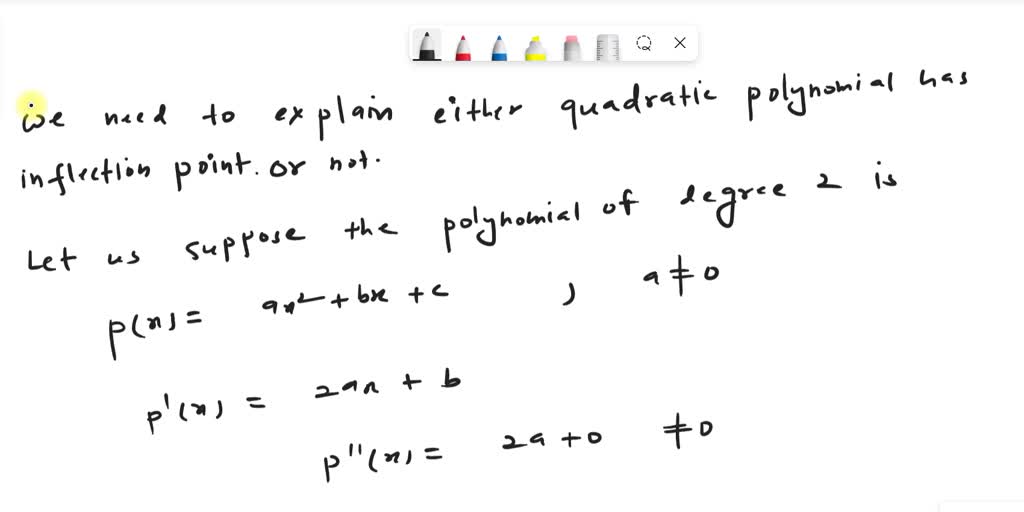 We need to explain either quadratic polynomial has
inflection point. or not.
Let us suppose the polynomial of degree 2 is
p(x) = ax² + bx + c , a ≠ 0
p'(x) = 2ax + b
p''(x) = 2a + 0 ≠ 0